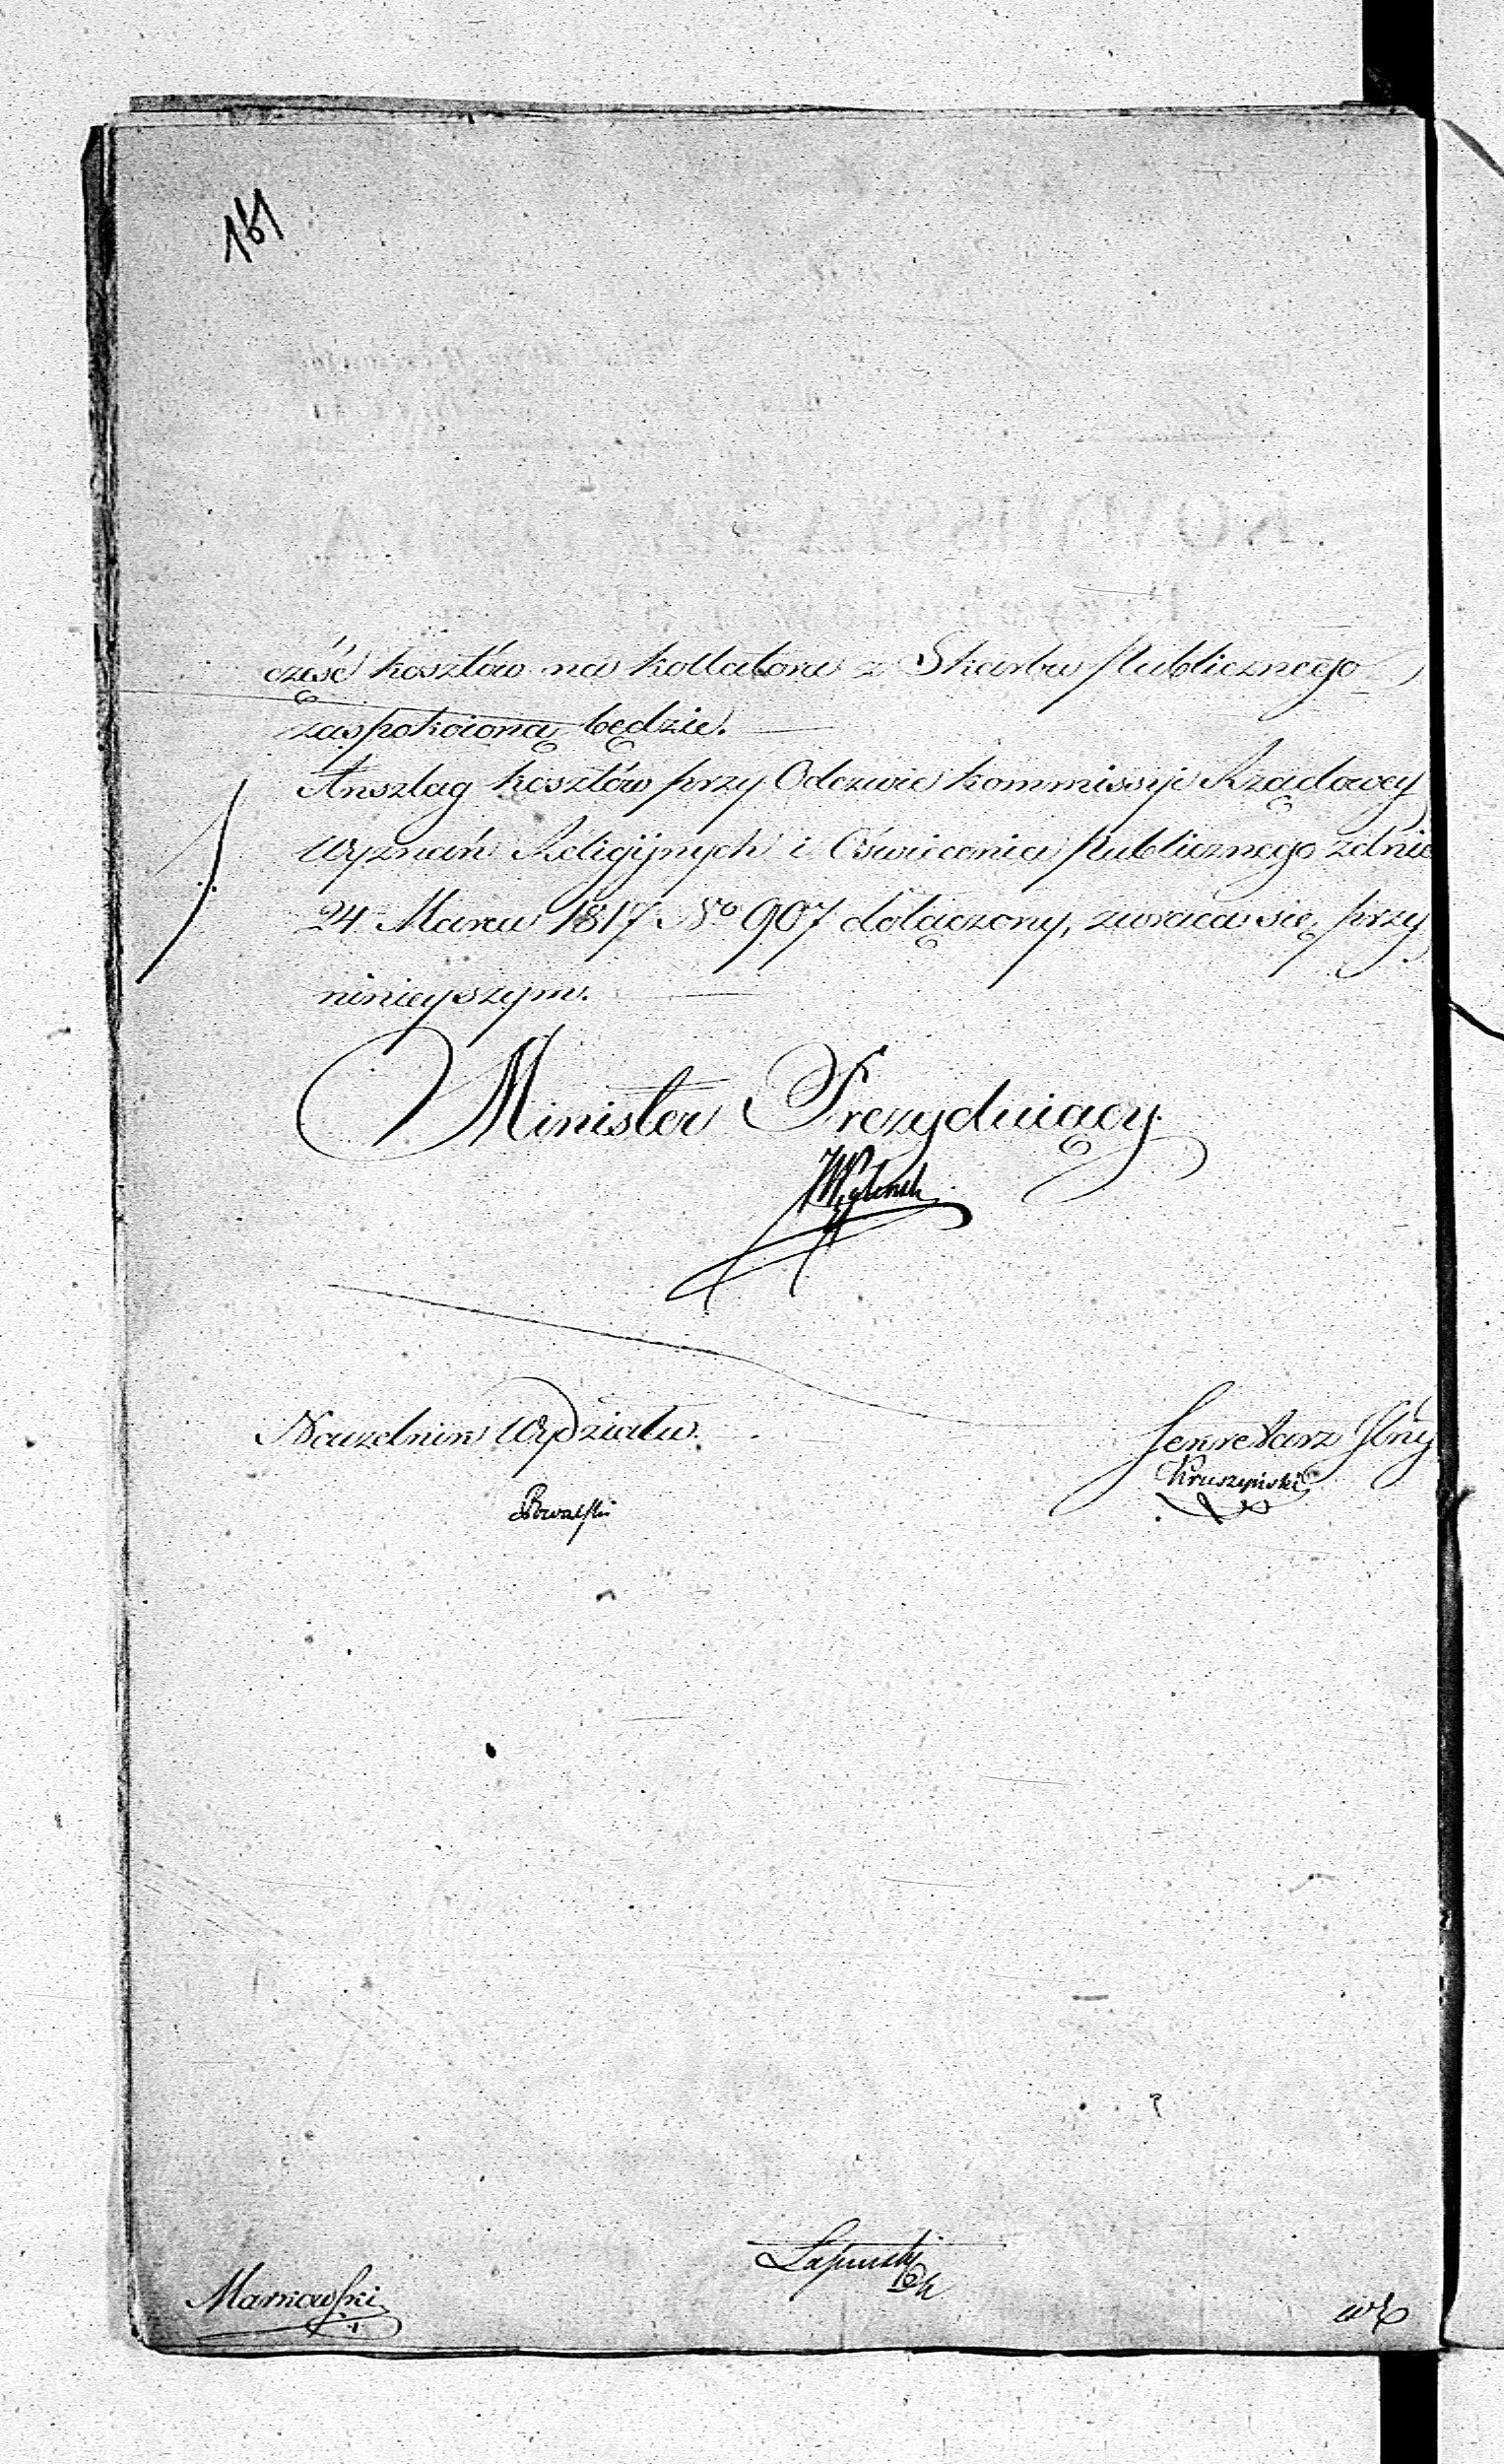 161
cześć kosztów na kollatora z Skarbu Publicznego
zaspokoioną będzie.
Anszlag kosztów przy Odezwie Kommissyi Rządowey
Wyznań Religijnych i Oświecenia Publicznego z dnia
24 Marca 1817 No 907 dołączony, zwraca się przy
ninieyszym.
Minister Prezyduiący
Naczelnik Wydziału
Sekretarz Jlny
Kruszyński